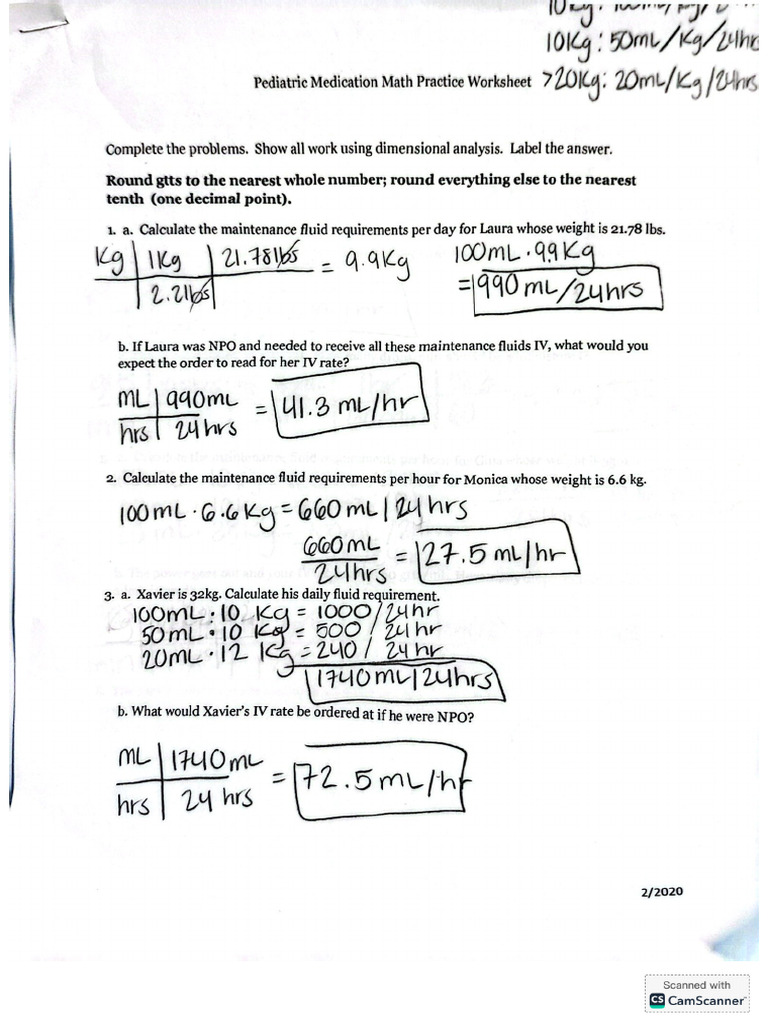 10kg: 100mL/kg/
10Kg: 50mL/Kg/24hr
Pediatric Medication Math Practice Worksheet >20Kg: 20mL/Kg/24hrs
Complete the problems. Show all work using dimensional analysis. Label the answer.
Round gtts to the nearest whole number; round everything else to the nearest
tenth (one decimal point).
1. a. Calculate the maintenance fluid requirements per day for Laura whose weight is 21.78 lbs.
Kg | 1Kg | 21.78 lbs = 9.9Kg 100mL · 9.9Kg
2.2lbs = 990 mL/24hrs
b. If Laura was NPO and needed to receive all these maintenance fluids IV, what would you
expect the order to read for her IV rate?
mL | 990mL = 41.3 mL/hr
hrs | 24 hrs
2. Calculate the maintenance fluid requirements per hour for Monica whose weight is 6.6 kg.
100mL · 6.6Kg = 660mL/24 hrs
660mL = 27.5 mL/hr
24hrs
3. a. Xavier is 32kg. Calculate his daily fluid requirement.
100mL · 10 Kg = 1000/24hr
50mL · 10 Kg = 500 / 24hr
20mL · 12 Kg = 240 / 24 hr
1740mL/24hrs
b. What would Xavier's IV rate be ordered at if he were NPO?
mL | 1740mL = 72.5mL/hr
hrs | 24 hrs
2/2020
Scanned with
CS CamScanner